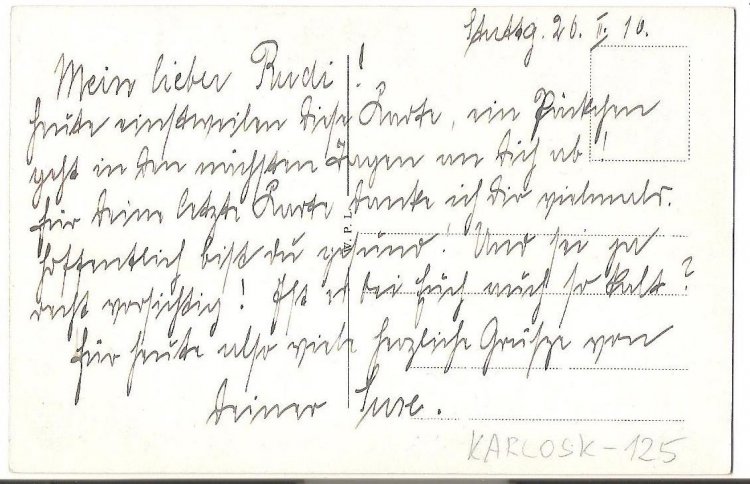 Stuttg. 26. II. 16.
Mein lieber Rudi!
Heute einstweilen diese Karte, ein Päckchen
geht in den nächsten Tagen an Dich ab!
Für Deine letzte Karte danke ich Dir vielmals.
Hoffentlich bist du gesund! Und sei ja
recht vorsichtig! Ist es bei Euch auch so kalt?
Für heute also viele herzliche Grüsze von
Deiner Suse.
W.P.L.
KARLOSK-125